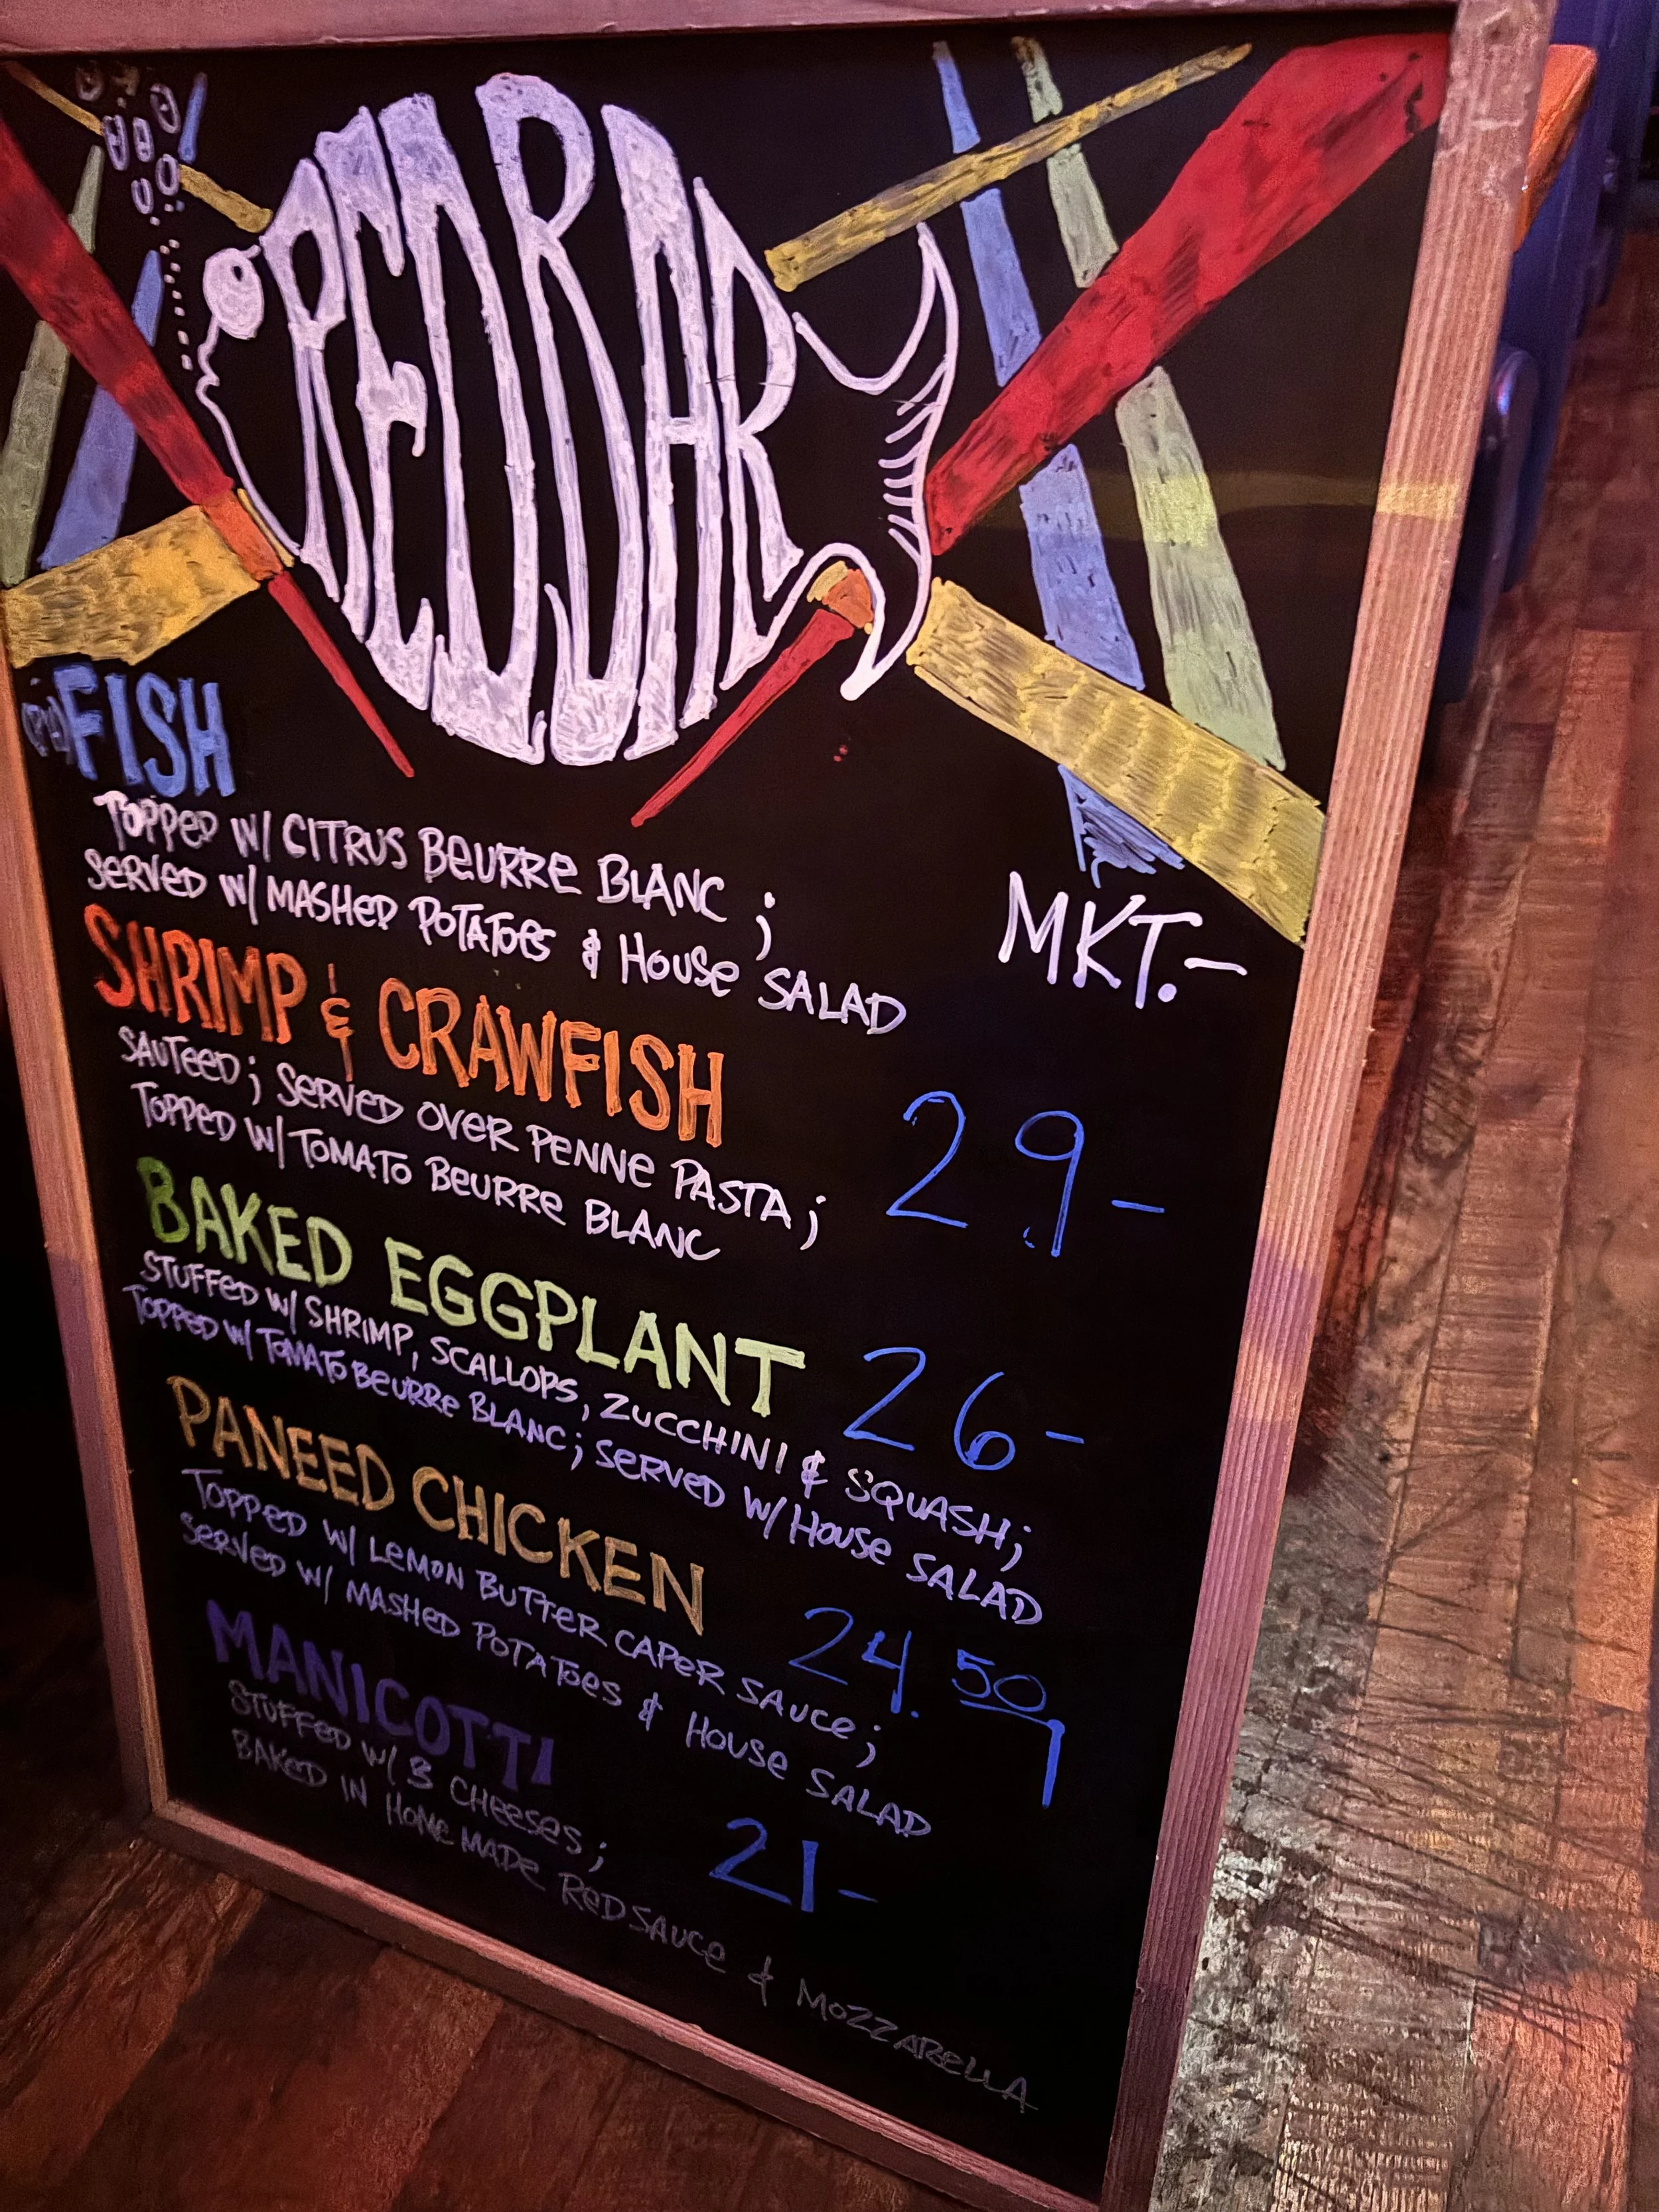 RED BAR
FISH
TOPPED W/ CITRUS BEURRE BLANC ;
SERVED W/ MASHED POTATOES & HOUSE SALAD
MKT.-
SHRIMP & CRAWFISH
SAUTEED ; SERVED OVER PENNE PASTA ;
TOPPED W/ TOMATO BEURRE BLANC
29-
BAKED EGGPLANT
STUFFED W/ SHRIMP, SCALLOPS, ZUCCHINI & SQUASH ;
TOPPED W/ TOMATO BEURRE BLANC ; SERVED W/ HOUSE SALAD
26-
PANEED CHICKEN
TOPPED W/ LEMON BUTTER CAPER SAUCE ;
SERVED W/ MASHED POTATOES & HOUSE SALAD
24.50
MANICOTTI
STUFFED W/ 3 CHEESES ;
BAKED IN HOMEMADE RED SAUCE & MOZZARELLA
21-